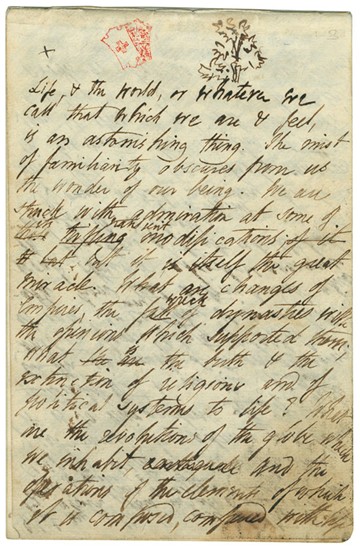 x
Life, & the world, or whatever we
call that which we are & feel,
is an astonishing thing. The mist
of familiarity obscures from us
the wonder of our being. We are
struck with admiration at some of
its transient
modifications
but it is itself the great
miracle. What are changes of
Empires, the wreck of dynasties with
the opinions which supported them;
what the birth & the
extinction of religions and of
political systems to life? What
are the revolutions of the globe which
we inhabit and the
operations of the elements of which
it is composed, compared with